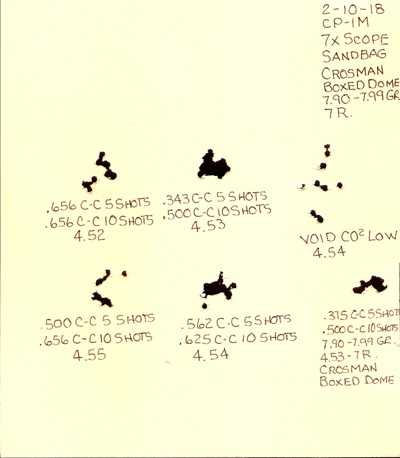 2-10-18
CP-1M
7X SCOPE
SANDBAG
CROSMAN
BOXED DOME
7.90-7.99 GR.
7 R.
.656 C-C 5 SHOTS
.656 C-C 10 SHOTS
4.52
.343 C-C 5 SHOTS
.500 C-C 10 SHOTS
4.53
VOID CO² LOW
4.54
.500 C-C 5 SHOTS
.656 C-C 10 SHOTS
4.55
.562 C-C 5 SHOTS
.625 C-C 10 SHOTS
4.54
.315 C-C 5 SHOTS
.500 C-C 10 SHOTS
7.90-7.99 GR.
4.53-7R.
CROSMAN
BOXED DOME